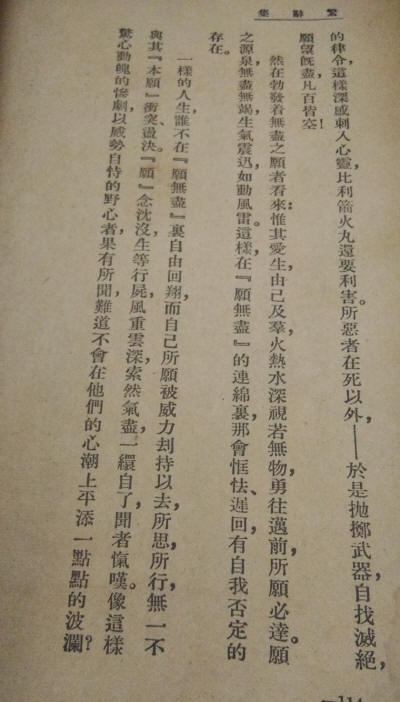 繁辭集
的律令，這樣深感刺人心靈，比利箭火丸還要利害。所惡者在死以外，——於是拋擲武器，自找滅絕，
願望既盡，凡百皆空！
然在勃發着無盡之願者看來：惟其愛生由己及羣，火熱水深視若無物，勇往邁前，所願必達。願
之源泉無盡無竭，生氣震迅，如動風雷。這樣，在『願無盡』的連綿裏，那會恇怯、遲回，有自我否定的
存在。
一樣的人生，誰不在『願無盡』裏自由回翔，而自己所願被威力刦持以去，所思，所行，無一不
與其『本願』衝突、盪決。『願』念沈沒，生等行屍，風重雲深，索然氣盡，一繯自了，聞者愾嘆。像這樣
驚心動魄的慘劇，以威勢自恃的野心者果有所聞，難道不會在他們的心潮上平添一點點的波瀾？